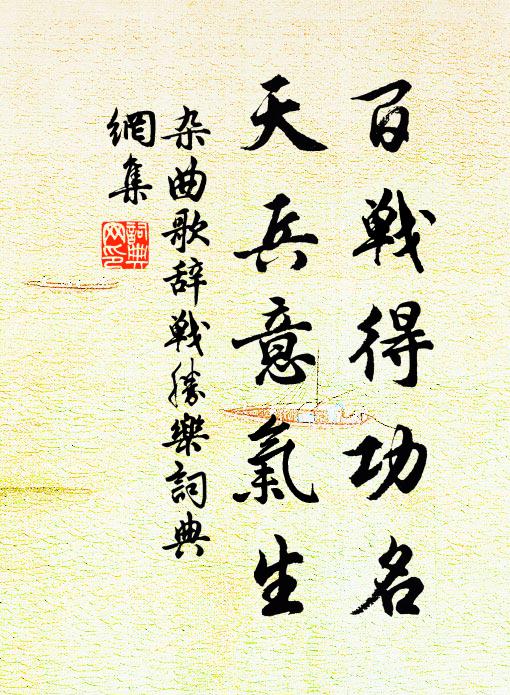 百戦得功名
天兵意氣生
杂曲歌辞戦勝樂詞典
網集
詞典
网印